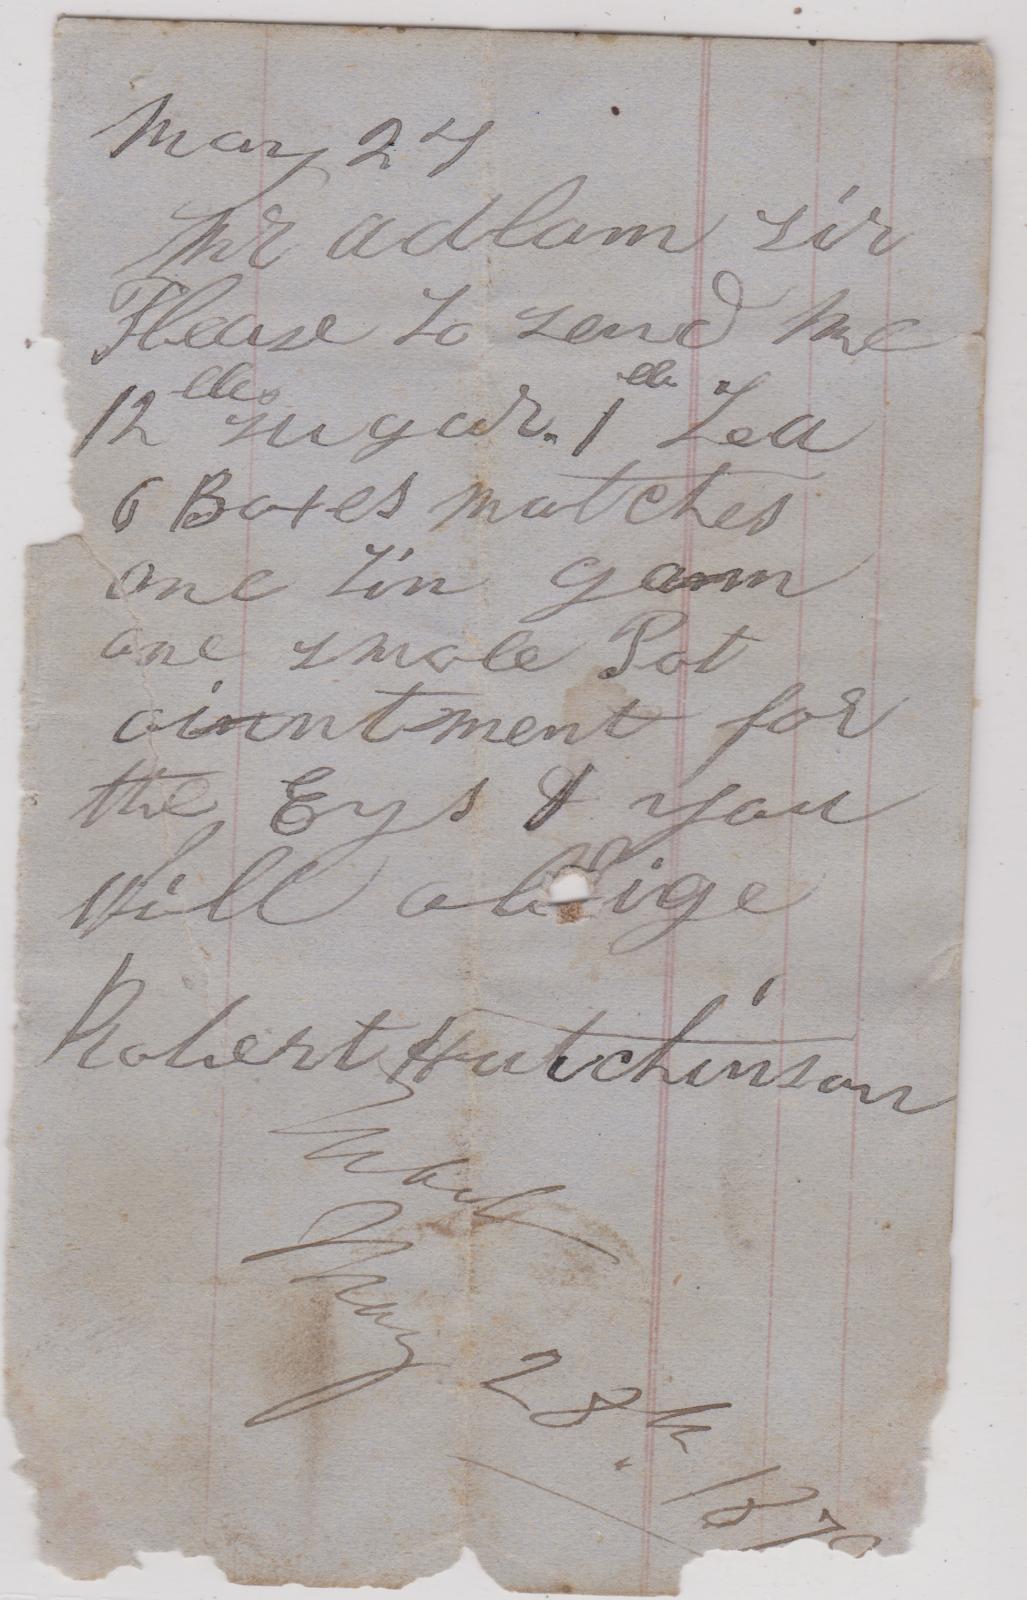 May 27
Mr adlam sir
Please to send me
12 lbs sugar. 1 lb Tea
6 Boxes matches
one tin gamm
one smole Pot
ointment for
the Eys & you
Will oblige
Robert Hutchinson
May 28th 187